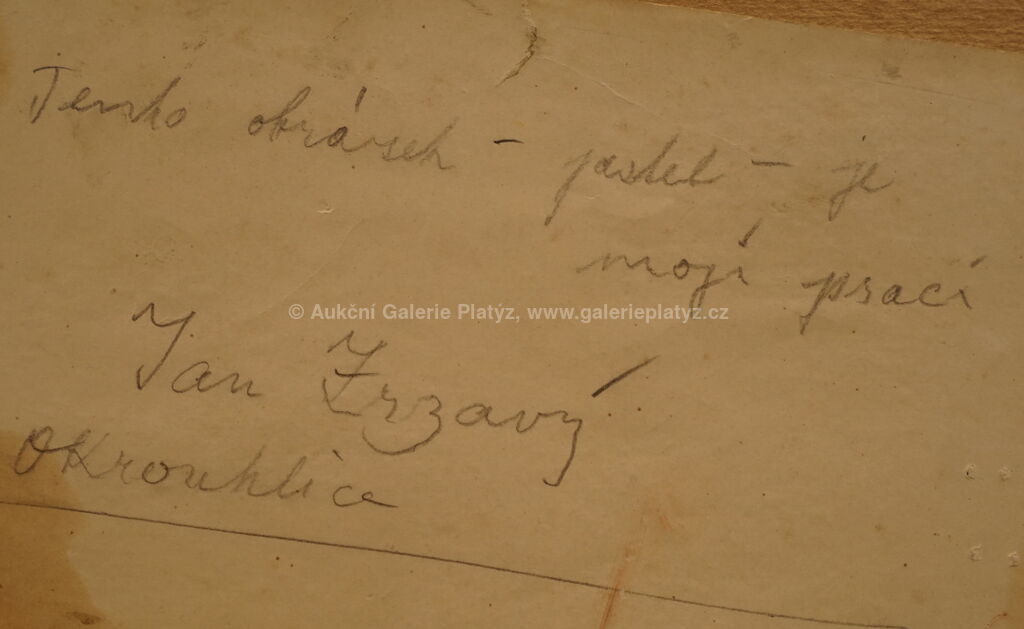 Tento obrázek – pastel – je
mojí prací
© Aukční Galerie Platýz, www.galerieplatyz.cz
Jan Zrzavý
Okrouhlice